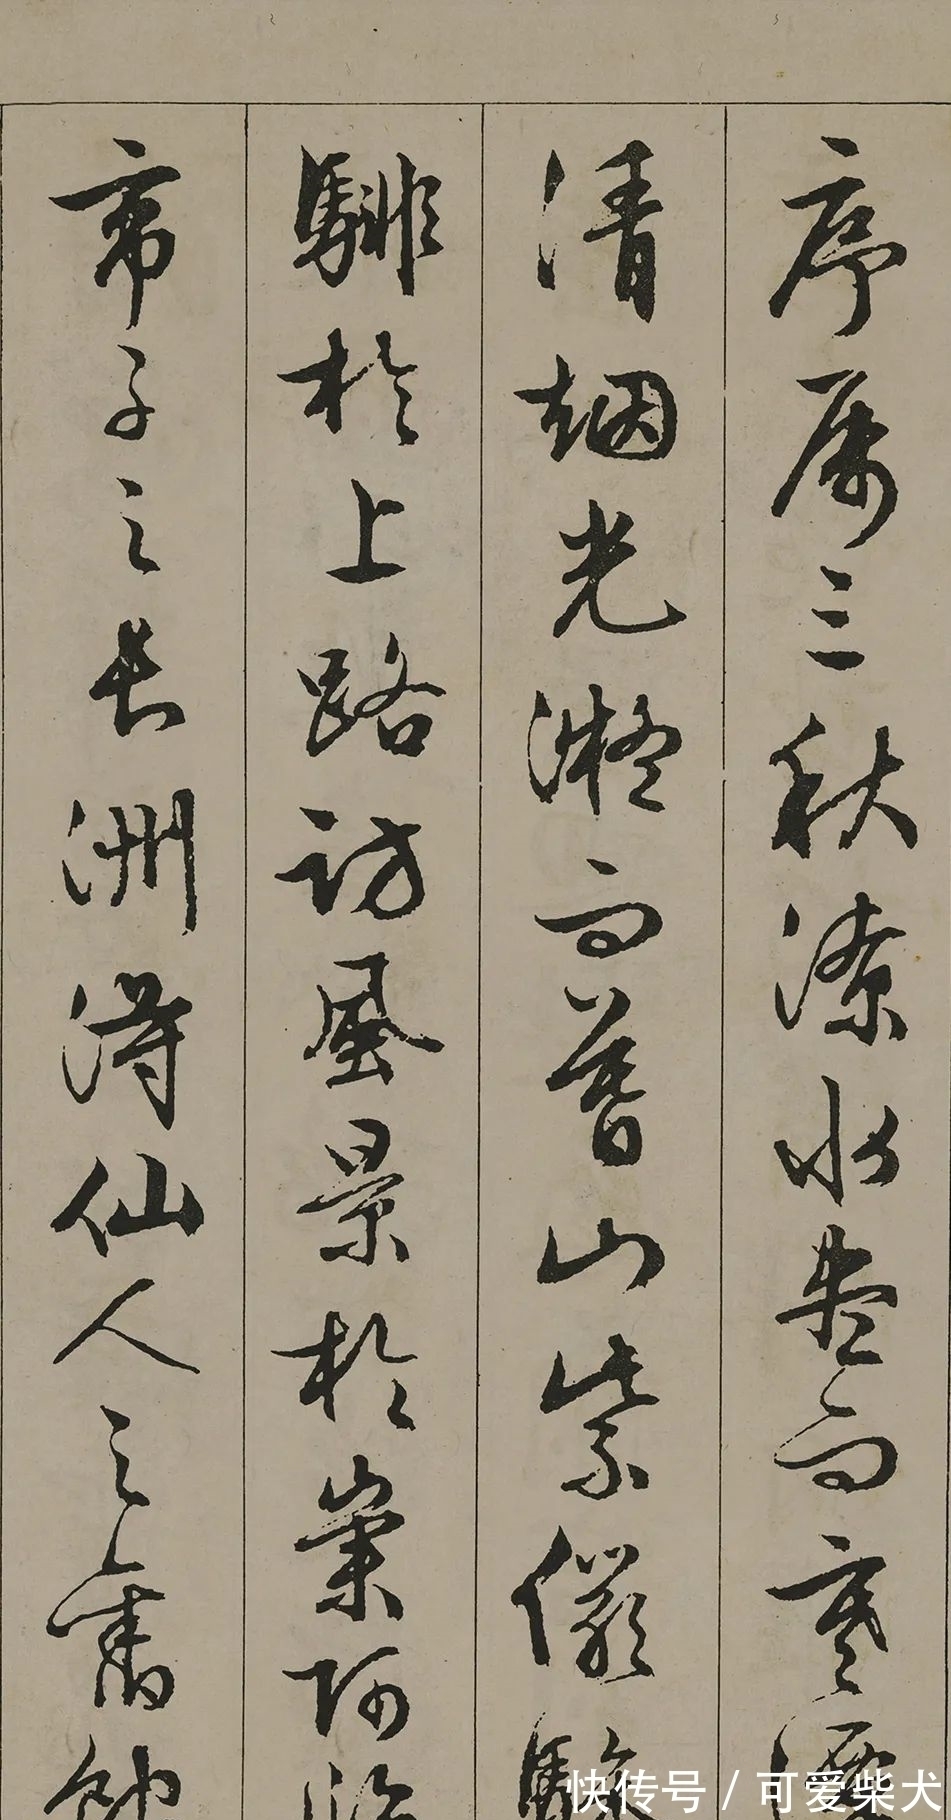 序属三秋潦水尽而寒潭
清烟光凝而暮山紫俨骖
騑於上路访風景於崇阿临
帝子之长洲得仙人之旧馆
快传号 / 可爱柴犬